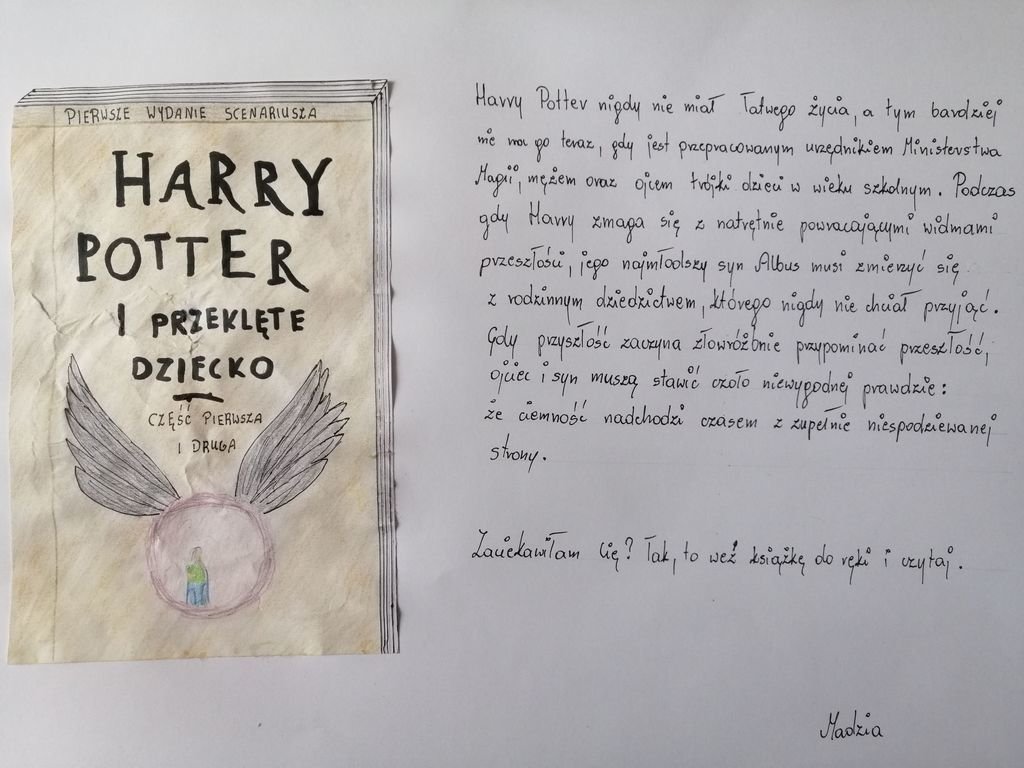 PIERWSZE WYDANIE SCENARIUSZA
HARRY
POTTER
I PRZEKLĘTE
DZIECKO
CZĘŚĆ PIERWSZA
I DRUGA
Harry Potter nigdy nie miał łatwego życia, a tym bardziej
nie ma go teraz, gdy jest przepracowanym urzędnikiem Ministerstwa
Magii, mężem oraz ojcem trójki dzieci w wieku szkolnym. Podczas
gdy Harry zmaga się z natrętnie powracającymi widmami
przeszłości, jego najmłodszy syn Albus musi zmierzyć się
z rodzinnym dziedzictwem, którego nigdy nie chciał przyjąć.
Gdy przyszłość zaczyna złowróżbnie przypominać przeszłość,
ojciec i syn muszą stawić czoło niewygodnej prawdzie:
że ciemność nadchodzi czasem z zupełnie niespodziewanej
strony.
Zaciekawiłam Cię? Tak, to weź książkę do ręki i czytaj.
Madzia